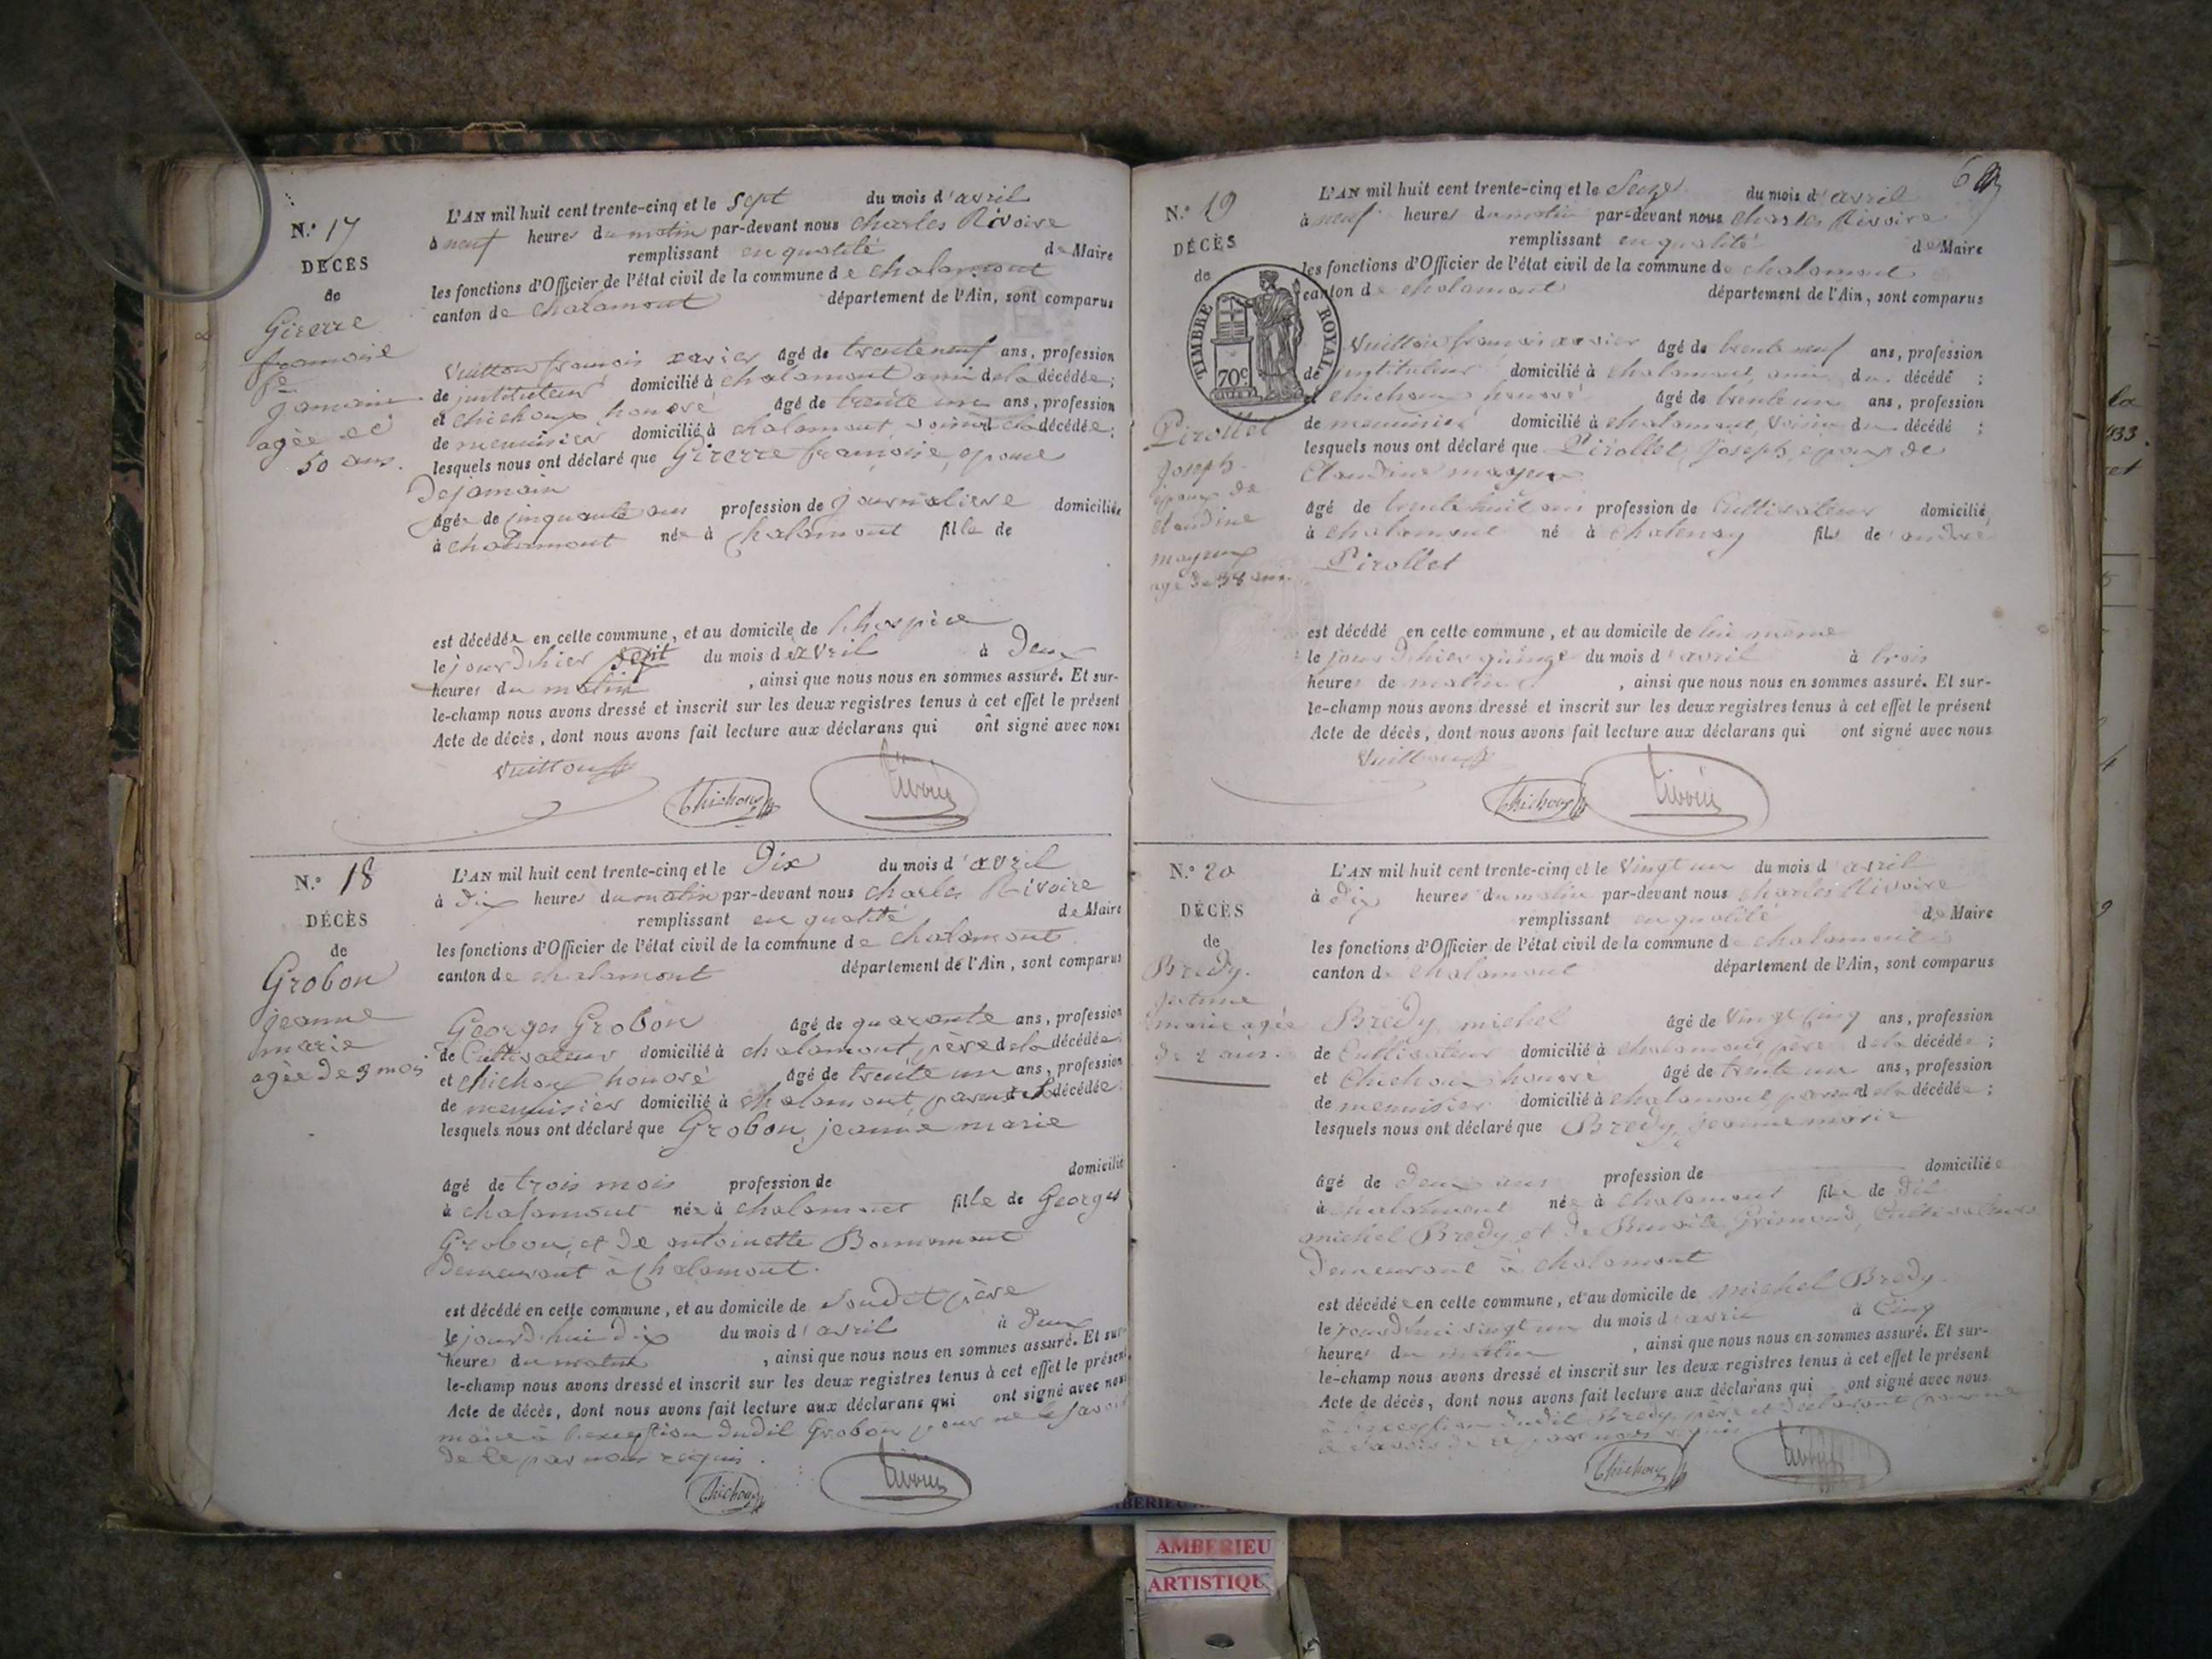 N.° 17
DÉCÈS
de
Girerre
françoise
fe
Jamain
agée de
50 ans.
L'AN mil huit cent trente-cinq et le sept du mois d'avril
à neuf heures du matin par-devant nous Charles Rivoire
remplissant en qualité de Maire
les fonctions d'Officier de l'état civil de la commune de chalamont
canton de chalamont département de l'Ain, sont comparus
Vuitton françois xavier âgé de trente neuf ans, profession
de instituteur domicilié à chalamont ami de la décédée;
et chichoux honoré âgé de trente un ans, profession
de menuisier domicilié à chalamont, voisin de la décédée;
lesquels nous ont déclaré que Girerre françoise, epouse
Dejamain
âgée de cinquante ans profession de journaliere domiciliée
à chalamont née à chalamont fille de
est décédée en cette commune, et au domicile de l'hospice
le jourd'hier sept du mois d'avril à Deux
heures du matin, ainsi que nous nous en sommes assuré. Et sur-
le-champ nous avons dressé et inscrit sur les deux registres tenus à cet effet le présent
Acte de décès, dont nous avons fait lecture aux déclarans qui ont signé avec nous
Vuitton Chichoux Rivoire
N.° 18
DÉCÈS
de
Grobon
jeanne
marie
agée de 3 mois
L'AN mil huit cent trente-cinq et le Dix du mois d'avril
à dix heures du matin par-devant nous charles Rivoire
remplissant en qualité de Maire
les fonctions d'Officier de l'état civil de la commune de chalamont
canton de chalamont département de l'Ain, sont comparus
Georges Grobon âgé de quarante ans, profession
de Cultivateur domicilié à chalamont, père de la décédée;
et chichoux honoré âgé de trente un ans, profession
de menuisier domicilié à chalamont, parent de la décédée
lesquels nous ont déclaré que Grobon, jeanne marie
âgé de trois mois profession de domicilié
à chalamont née à chalamont fille de Georges
Grobon, et de antoinette Bonnamont
demeurant à Chalamont.
est décédé en cette commune, et au domicile de soudit père
le jourd'hui dix du mois d'avril à deux
heures du matin, ainsi que nous nous en sommes assuré. Et sur-
le-champ nous avons dressé et inscrit sur les deux registres tenus à cet effet le présent
Acte de décès, dont nous avons fait lecture aux déclarans qui ont signé avec nous
maire à l'exception dudit Grobon pour ne le savoir
de ce par nous requis.
Chichoux Rivoire
6
N.° 19
DÉCÈS
de
TIMBRE ROYAL
70c
Pirollet
Joseph
epoux de
claudine
mayeux
agé de 38 ans.
L'AN mil huit cent trente-cinq et le Seize du mois d'avril
à neuf heures du matin par-devant nous charles Rivoire
remplissant en qualité de Maire
les fonctions d'Officier de l'état civil de la commune de chalamont
canton de chalamont département de l'Ain, sont comparus
Vuitton françois xavier âgé de trente neuf ans, profession
de instituteur domicilié à chalamont, ami du décédé;
et chichoux honoré âgé de trente un ans, profession
de menuisier domicilié à chalamont, voisin du décédé;
lesquels nous ont déclaré que Pirollet, Joseph, epoux de
Claudine mayeux
âgé de trente huit ans profession de Cultivateur domicilié
à chalamont né à chatenay fils de andré
Pirollet
est décédé en cette commune, et au domicile de lui même
le jour d'hier quinze du mois d'avril à trois
heures de matin, ainsi que nous nous en sommes assuré. Et sur-
le-champ nous avons dressé et inscrit sur les deux registres tenus à cet effet le présent
Acte de décès, dont nous avons fait lecture aux déclarans qui ont signé avec nous
Vuitton Chichoux Rivoire
N.° 20
DÉCÈS
de
Bredy.
marie agée
de 2 ans.
L'AN mil huit cent trente-cinq et le vingt un du mois d'avril
à dix heures du matin par-devant nous charles Rivoire
remplissant en qualité de Maire
les fonctions d'Officier de l'état civil de la commune de chalamont
canton de chalamont département de l'Ain, sont comparus
Bredy michel âgé de Vingt cinq ans, profession
de Cultivateur domicilié à chalamont, père de la décédée;
et Chichoux honoré âgé de trente un ans, profession
de menuisier domicilié à chalamont, parent de la décédée;
lesquels nous ont déclaré que Bredy, jeanne marie
âgé de Deux ans profession de domiciliée
à chalamont née à chalamont fille de dit
michel Bredy, et de Benoite Grimand, Cultivateurs
Demeurant à chalamont
est décédée en cette commune, et au domicile de michel Bredy.
le jourd'hui vingt un du mois d'avril à Cinq
heures du matin, ainsi que nous nous en sommes assuré. Et sur-
le-champ nous avons dressé et inscrit sur les deux registres tenus à cet effet le présent
Acte de décès, dont nous avons fait lecture aux déclarans qui ont signé avec nous
à l'exception dudit Bredy père et déclarant pour ne
le savoir de ce par nous requis
Chichoux Rivoire
AMBERIEU
ARTISTIQUE